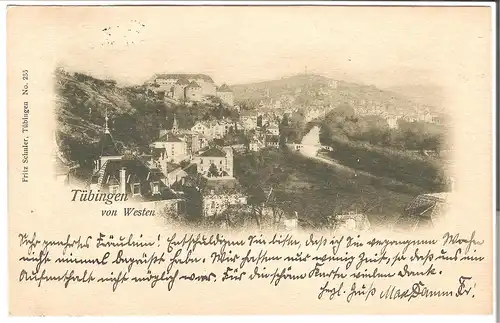 Fritz Schuler, Tübingen No. 255
Tübingen
von Westen
Sehr geehrtes Fräulein! Entschuldigen Sie bitte, daß ich Sie vergangene Woche
nicht einmal begrüßt habe. Wir hatten nur wenig Zeit, so daß uns ein
Aufenthalt nicht möglich war. Für die schöne Karte vielen Dank.
Herzl. Gruß Max